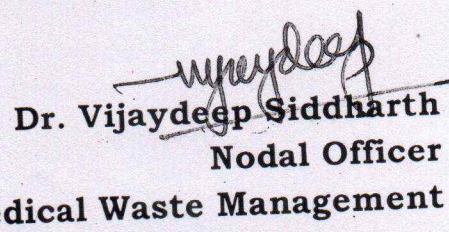 Vijaydeep
Dr. Vijaydeep Siddharth
Nodal Officer
edical Waste Management